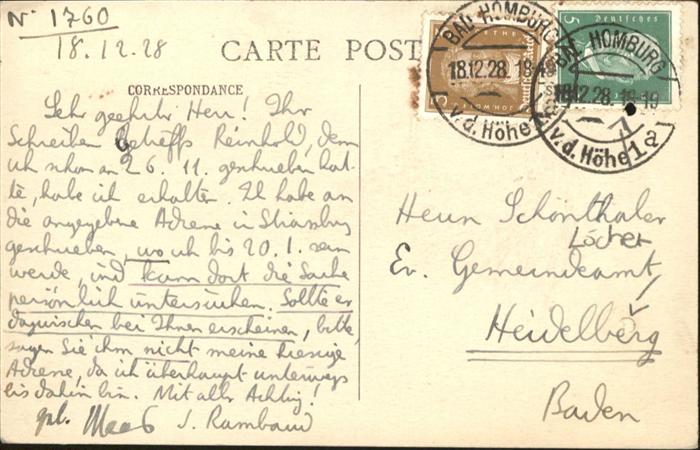 No 1760
18.12.28
CARTE POST
CORRESPONDANCE
Sehr geehrter Herr! Ihr
Schreiben betreffs Reinhold, dem
ich schon am 26. 11. geschrieben hat-
te, habe ich erhalten. Ich habe an
die angegebene Adresse in Strassburg
geschrieben, wo ich bis 20.1. sein
werde, und kann dort die Sache
persönlich untersuchen. Sollte er
dazwischen bei Ihnen erscheinen, bitte,
sagen Sie ihm nicht meine hiesige
Adresse, da ich überhaupt unterwegs
bis dahin bin. Mit aller Achtung!
J. Rambaud
BAD HOMBURG
18.12.28. 18-19
v.d. Höhe
5 Deutsches
BAD HOMBURG
18.12.28. 18-19
v.d. Höhe 1a
Herrn Schönthaler
Löcher
Ev. Gemeindeamt,
Heidelberg
Baden